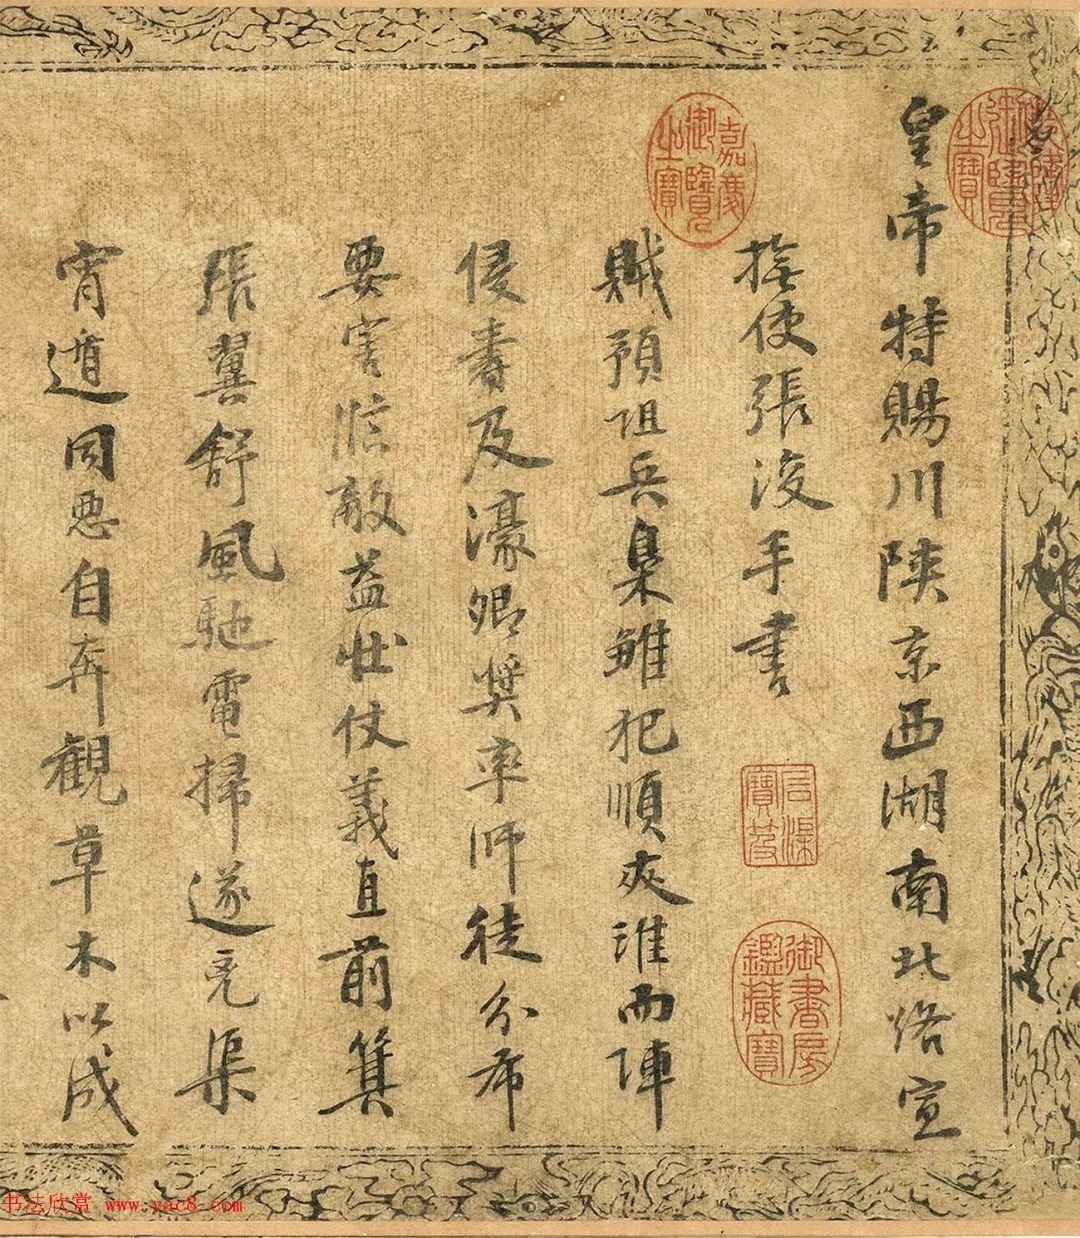 皇帝特賜川陝京西湖南北路宣
撫使張浚手書
賊預阻兵梟雛犯順夾淮而陣
侵壽及濠卿獎率師徒分布
要害臨敵益壯仗義直前箕
張翼舒風馳電掃遂克渠
宵遁同惡自奔觀草木以成
嘉慶御覽之寶
石渠寶笈
御書房鑑藏寶
书法欣赏 www.yac8.com